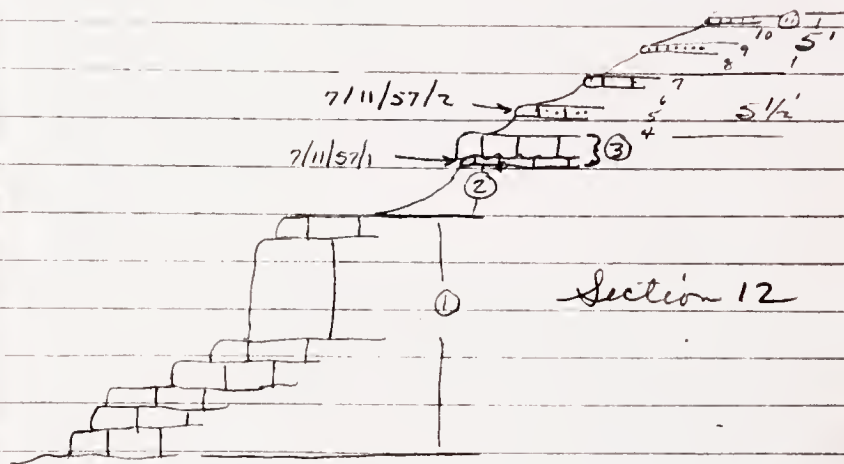 10 11 1
5'
9
8 1
7
7/11/57/2
6
5 5 1/2'
4
3
7/11/57/1
2
1
Section 12